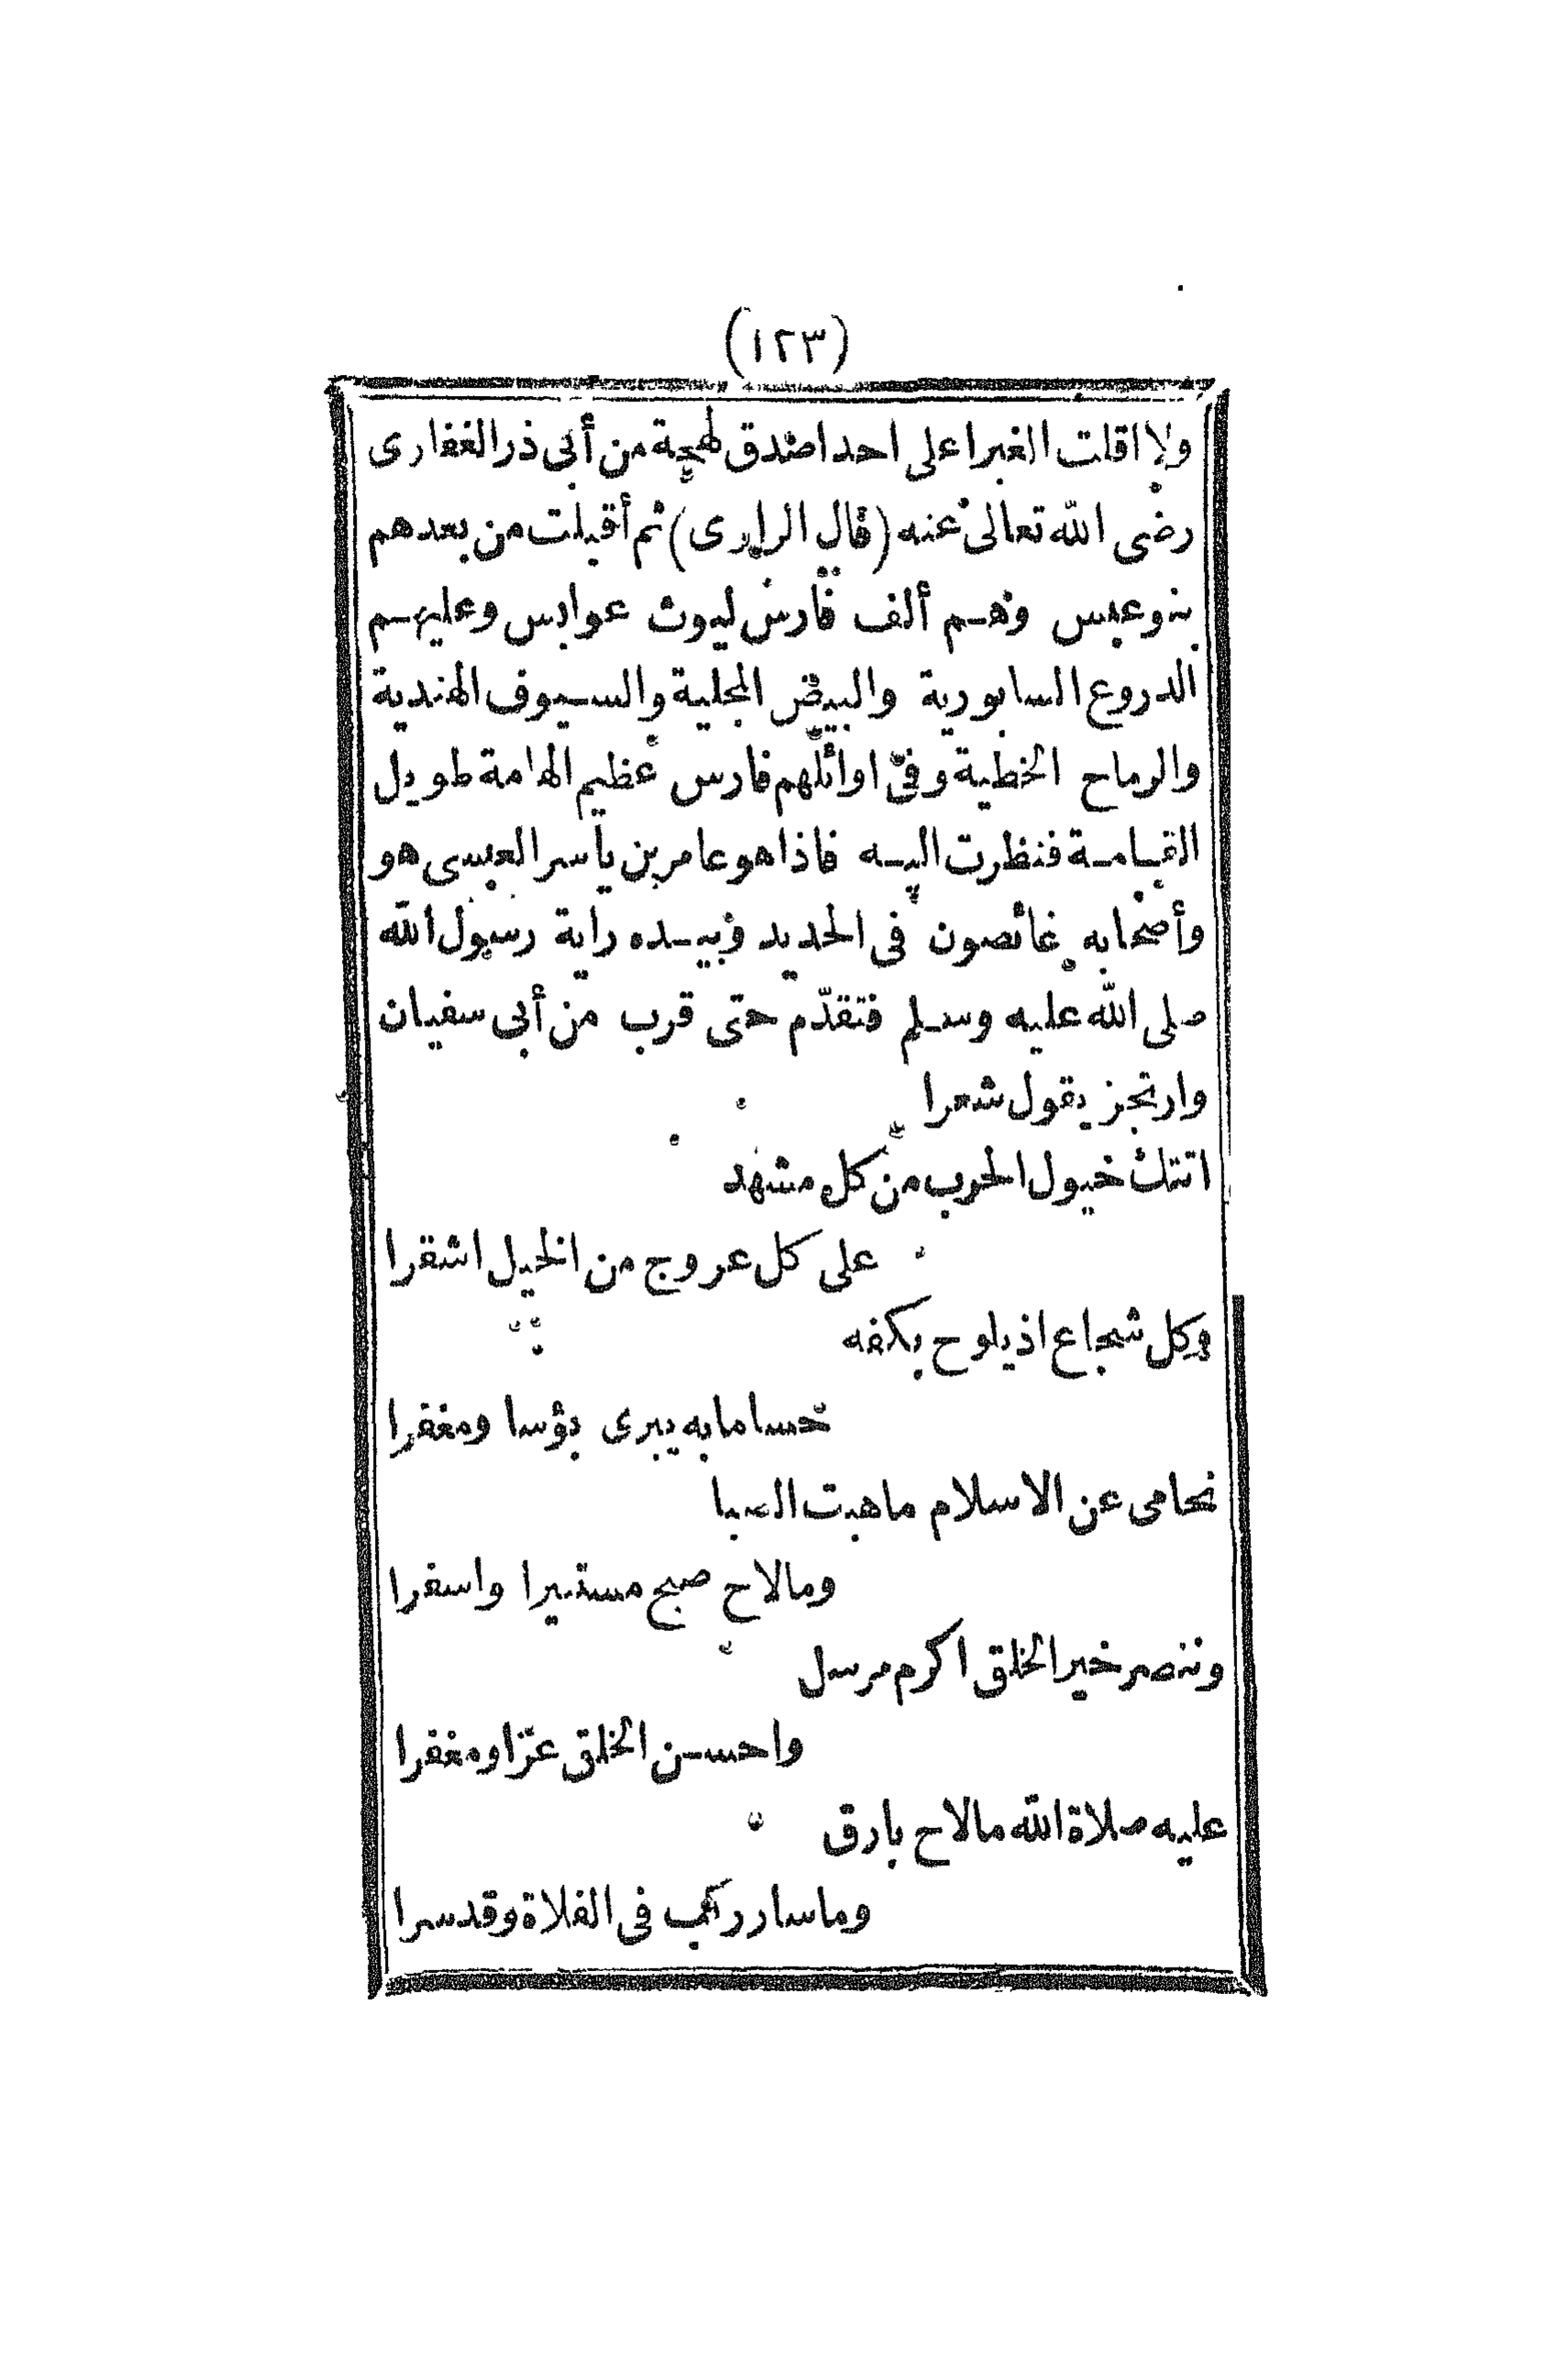 (١٢٣)
ولا اقلت الغبرا على احد اصدق لهجة من أبى ذر الغفارى
رضى الله تعالى عنه (قال الراوى) ثم أقبلت من بعدهم
بنو عبس وهم ألف فارس ليوث عوابس وعليهم
الدروع السابورية والبيض المجلية والسيوف الهندية
والرماح الخطية وفى اوائلهم فارس عظيم الهامة طويل
القامة فنظرت اليه فاذا هو عامر بن ياسر العبسى هو
وأصحابه غائصون فى الحديد وبيده راية رسول الله
صلى الله عليه وسلم فتقدّم حتى قرب من أبى سفيان
وارتجز يقول شعرا
اتتك خيول الحرب من كل مشهد
على كل عروج من الخيل اشقرا
وكل شجاع اذ يلوح بكفه
حساما به يبرى بؤسا ومغفرا
نحامى عن الاسلام ماهبت الصبا
ومالاح صبح مستنيرا واسفرا
وننصر خير الخلق اكرم مرسل
واحسن الخلق عزّا ومغفرا
عليه صلاة الله مالاح بارق
وماسار ركب فى الفلاة وقد سرا